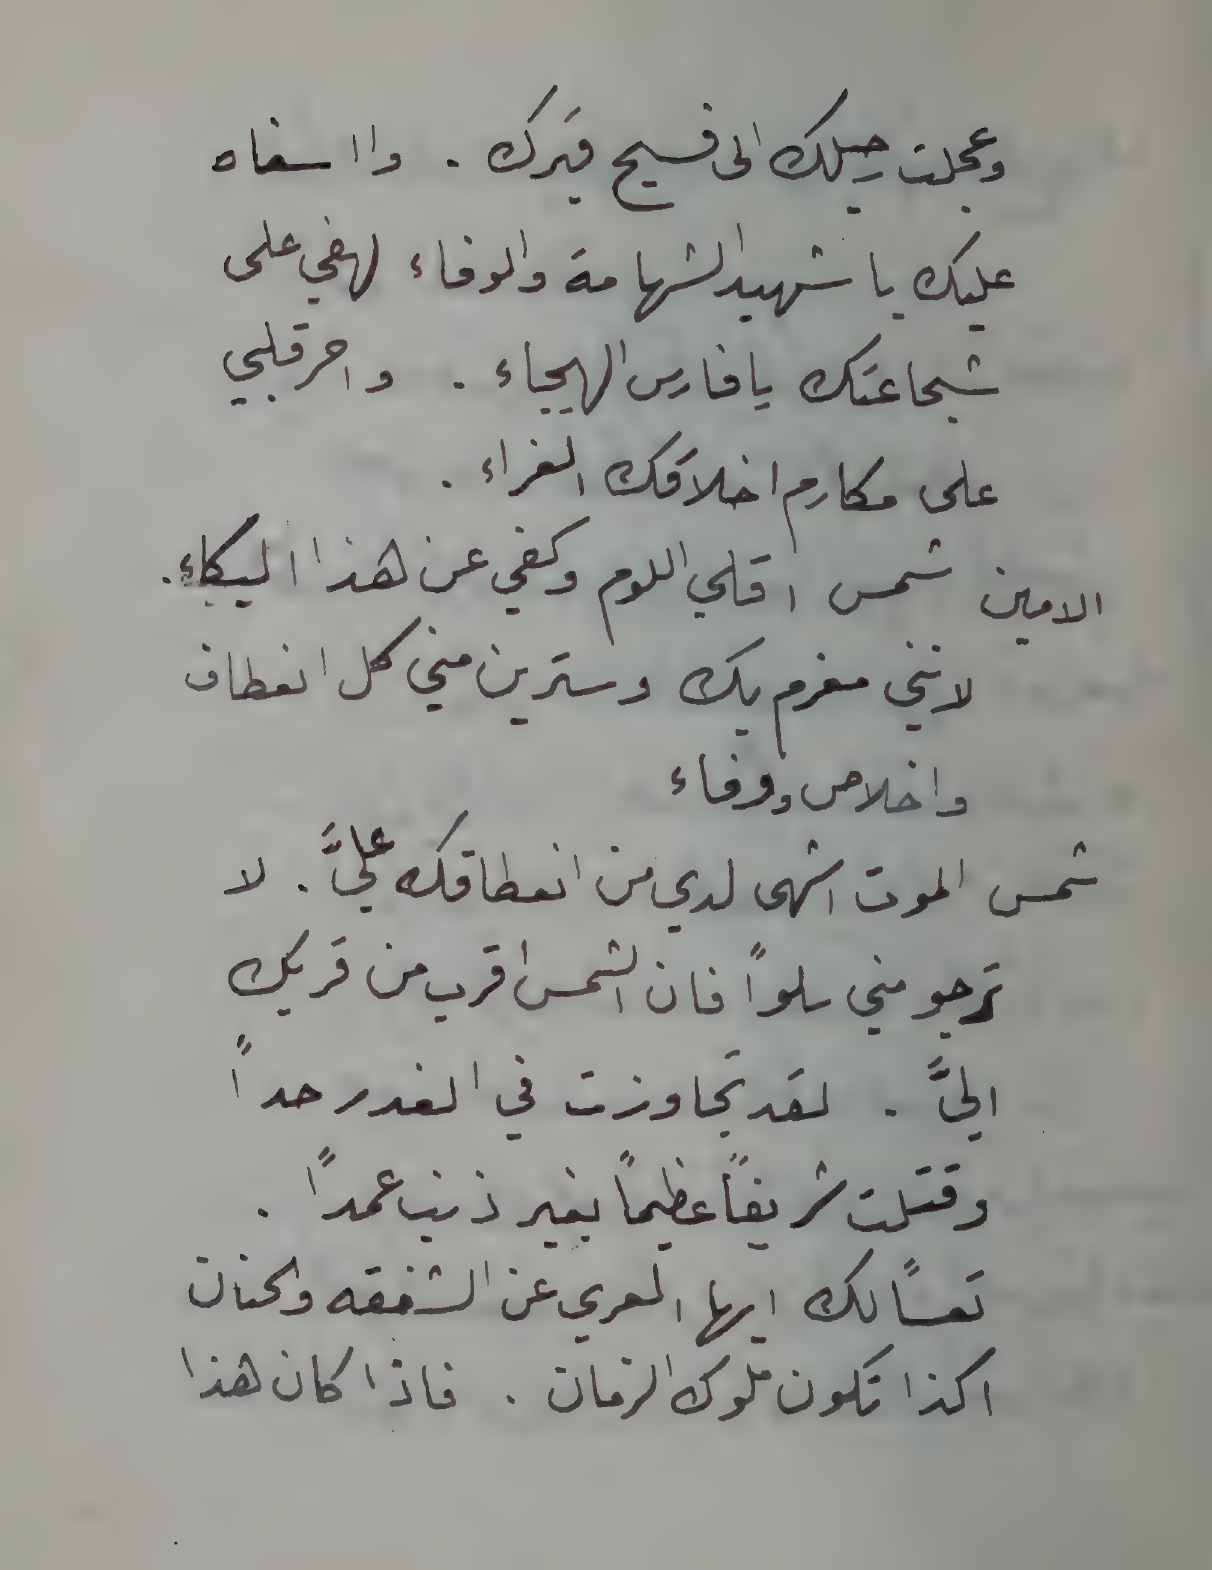 وعجلت جيلك الى فسيح قبرك . وا اسفاه
عليك يا شهيد الشهامة والوفاء لهفي على
شجاعتك يا فارس الهيجاء . واحر قلبي
على مكارم اخلاقك الغراء .
الامين شمس اقلي اللوم وكفي عن هذا البكاء .
لانني مغرم بك وسترين مني كل انعطاف
واخلاص ووفاء
شمس الموت اشهى لدي من انعطافك عليَّ . لا
ترجو مني سلواً فان الشمس اقرب من قربك
اليَّ . لقد تجاوزت في الغدر حداً
وقتلت شريفاً عظيماً بغير ذنب عمداً .
تعساً لك ايها العري عن الشفقه والحنان
اكذا تكون ملوك الزمان . فاذا كان هذا